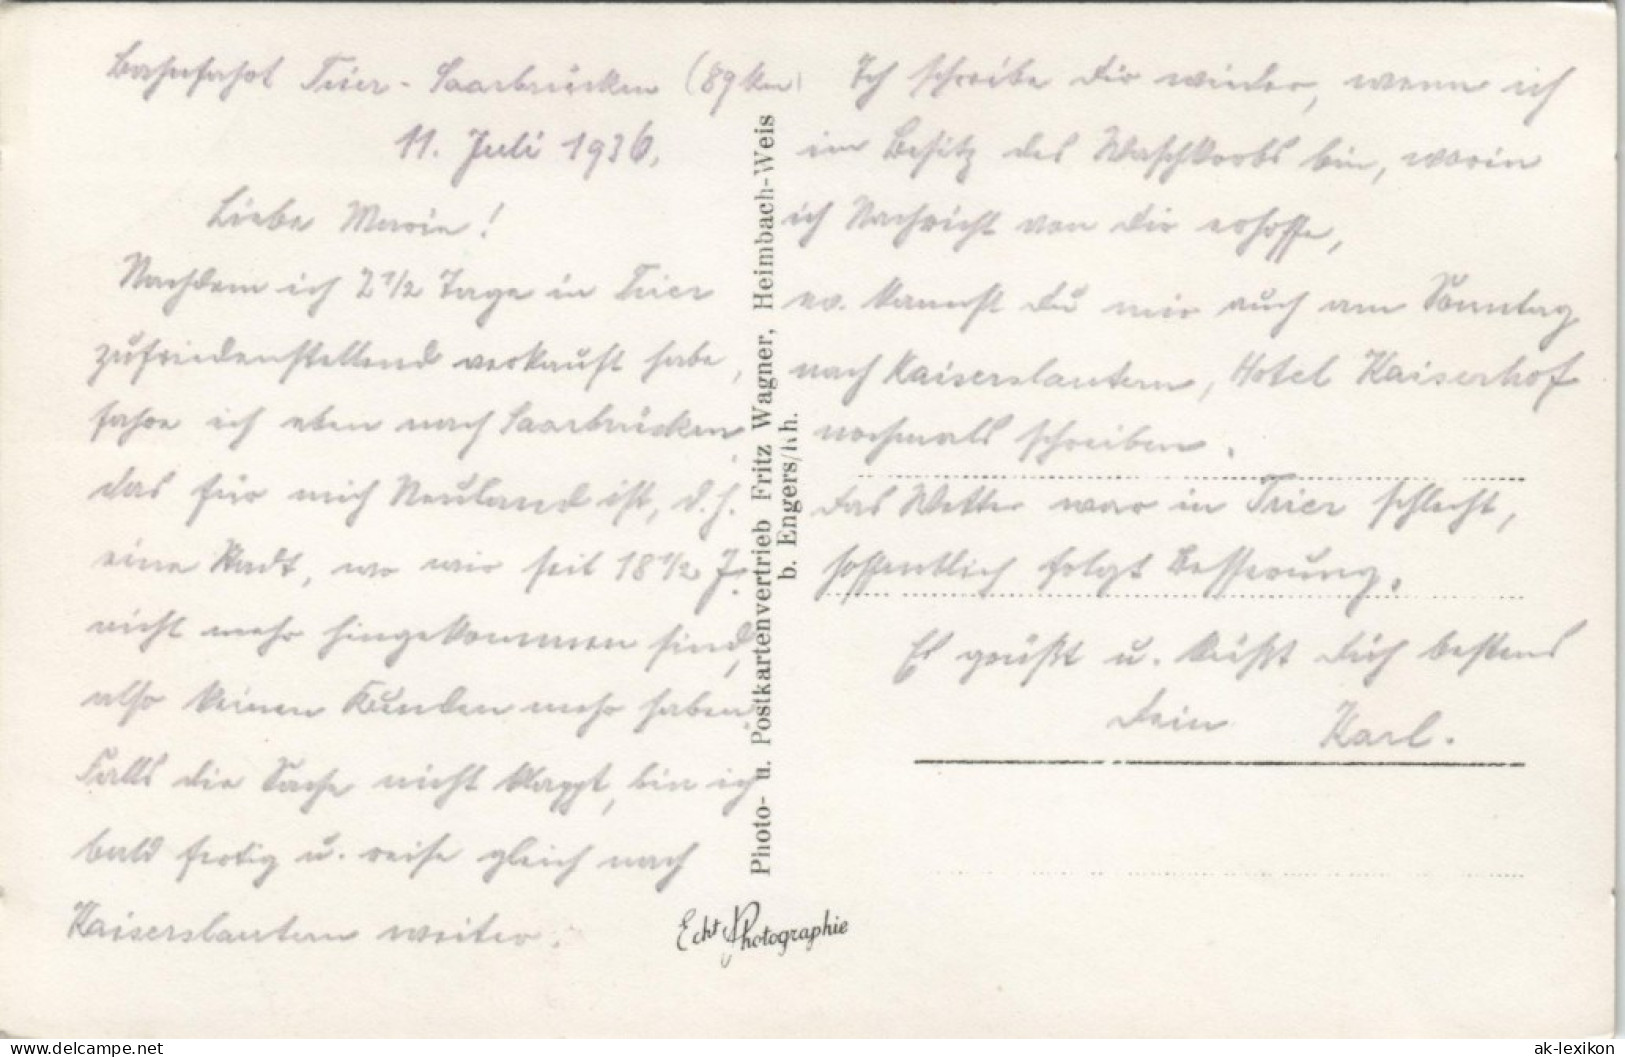 Bahnfahrt Trier - Saarbrücken (89 km)
11. Juli 1936.
Liebe Marie!
Nachdem ich 2 1/2 Tage in Trier
zufriedenstellend verkauft habe,
fahre ich eben nach Saarbrücken,
das für mich Neuland ist, d.h.
eine Stadt, wo wir seit 18 1/2 J.
nicht mehr hingekommen sind,
also keinen Kunden mehr haben.
Falls die Sache nicht klappt, bin ich
bald fertig u. reise gleich nach
Kaiserslautern weiter.
Ich schreibe Dir wieder, wenn ich
im Besitz des Waschkorbs bin, worin
ich Nachricht von Dir erhoffe,
ev. kannst Du mir auch am Sonntag
nach Kaiserslautern, Hotel Kaiserhof
nochmals schreiben.
Das Wetter war in Trier schlecht,
hoffentlich folgt Besserung.
Es grüßt u. küßt Dich bestens
Dein Karl.
Photo- u. Postkartenvertrieb Fritz Wagner, Heimbach-Weis
b. Engers/Rh.
Echt Photographie
www.delcampe.net
ak-lexikon